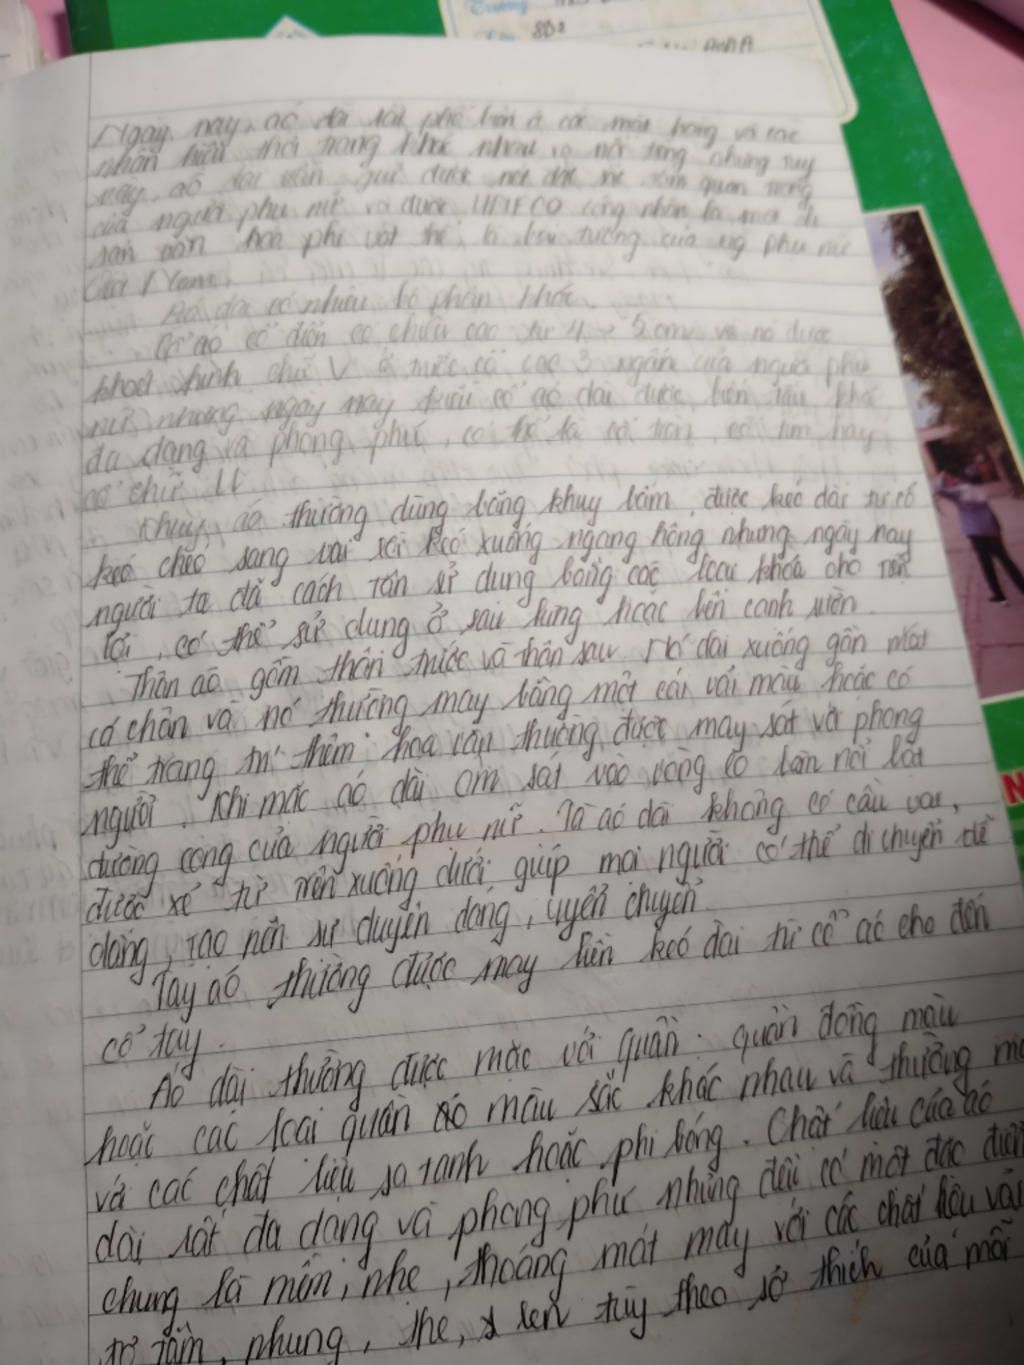 Trường
8D2
Ngày nay, áo dài rất phổ biến ở các mặt hàng và các
nhãn hiệu thời trang khác nhau và nổi tiếng nhưng tuy
vậy, áo dài vẫn giữ được nét đẹp quan trọng
của người phụ nữ và được UNECO công nhận là một di
sản văn hoá phi vật thể, là biểu tượng của ng phụ nữ
Việt Nam.
Áo dài có nhiều bộ phận khác.
Cổ áo cổ điển có chiều cao từ 4 → 5 cm và nó được
khoét hình chữ V ở trước cổ cao 3 ngấn của người phụ
nữ nhưng ngày nay kiểu cổ áo dài được biến tấu khá
đa dạng và phong phú, có thể là cổ tròn, cổ tim hay
cổ chữ U
Khuy áo thường dùng bằng khuy bấm, được kéo dài từ cổ
kéo chéo sang vai rồi kéo xuống ngang hông nhưng ngày nay
người ta đã cách tân sử dụng bằng các loại khoá cho tiện
lợi, có thể sử dụng ở sau lưng hoặc bên cạnh sườn.
Thân áo gồm thân trước và thân sau. Nó dài xuống gần mắt
cá chân và nó thường may bằng một cái vải màu hoặc có
thể trang trí thêm hoa văn thường được may sát với phong
người. Khi mặc áo dài ôm sát vào vòng eo làm nổi bật
đường cong của người phụ nữ. Tà áo dài không có cầu vai,
được xẻ từ trên xuống dưới giúp mọi người có thể di chuyển dễ
dàng, tạo nên sự duyên dáng, uyển chuyển.
Tay áo thường được may liền kéo dài từ cổ áo cho đến
cổ tay.
Áo dài thường được mặc với quần: quần đồng màu
hoặc các loại quần áo màu sắc khác nhau và thường
với các chất liệu sa tanh hoặc phi bóng. Chất liệu của áo
dài rất đa dạng và phong phú nhưng đều có một đặc điểm
chung là mềm, nhẹ, thoáng mát may với các chất liệu vải
tơ tằm, nhung, the, sen tùy theo sở thích của mỗi